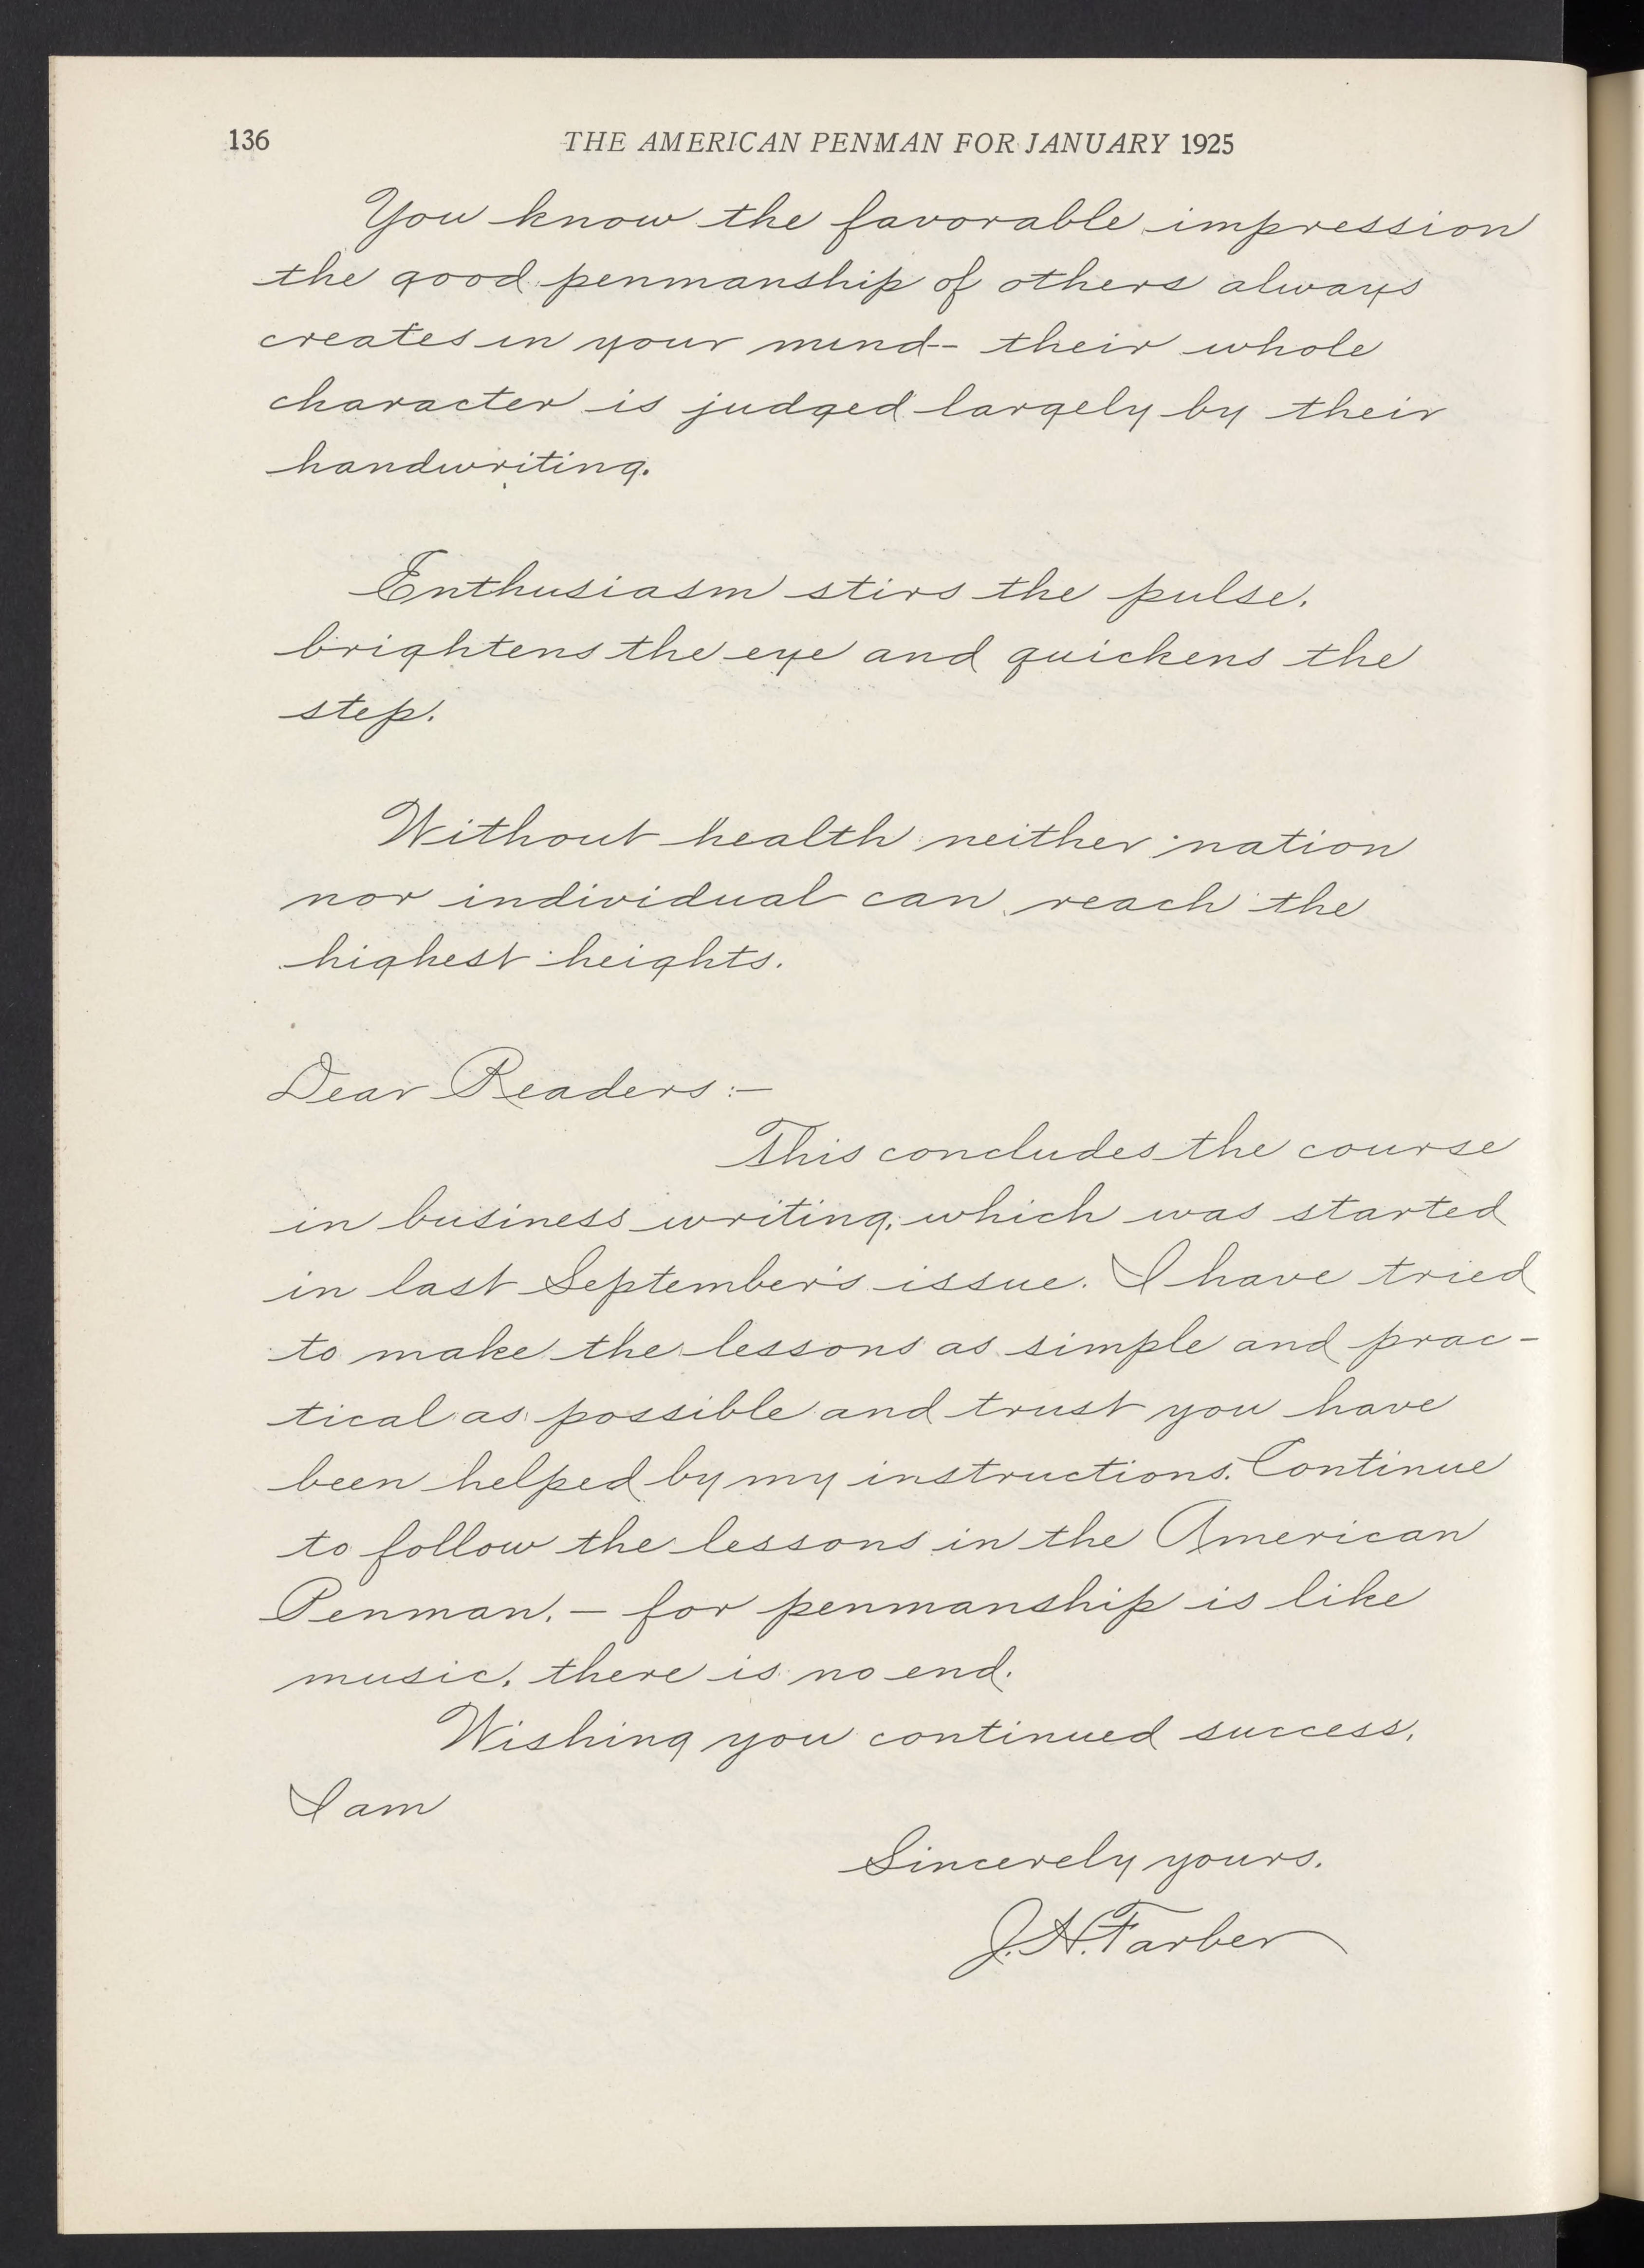 136 THE AMERICAN PENMAN FOR JANUARY 1925
You know the favorable impression
the good penmanship of others always
creates in your mind - their whole
character is judged largely by their
handwriting.
Enthusiasm stirs the pulse,
brightens the eye and quickens the
step.
Without health neither nation
nor individual can reach the
highest heights.
Dear Readers:-
This concludes the course
in business writing, which was started
in last September's issue. I have tried
to make the lessons as simple and prac-
tical as possible and trust you have
been helped by my instructions. Continue
to follow the lessons in the American
Penman, - for penmanship is like
music, there is no end.
Wishing you continued success,
I am
Sincerely yours,
J. H. Farber